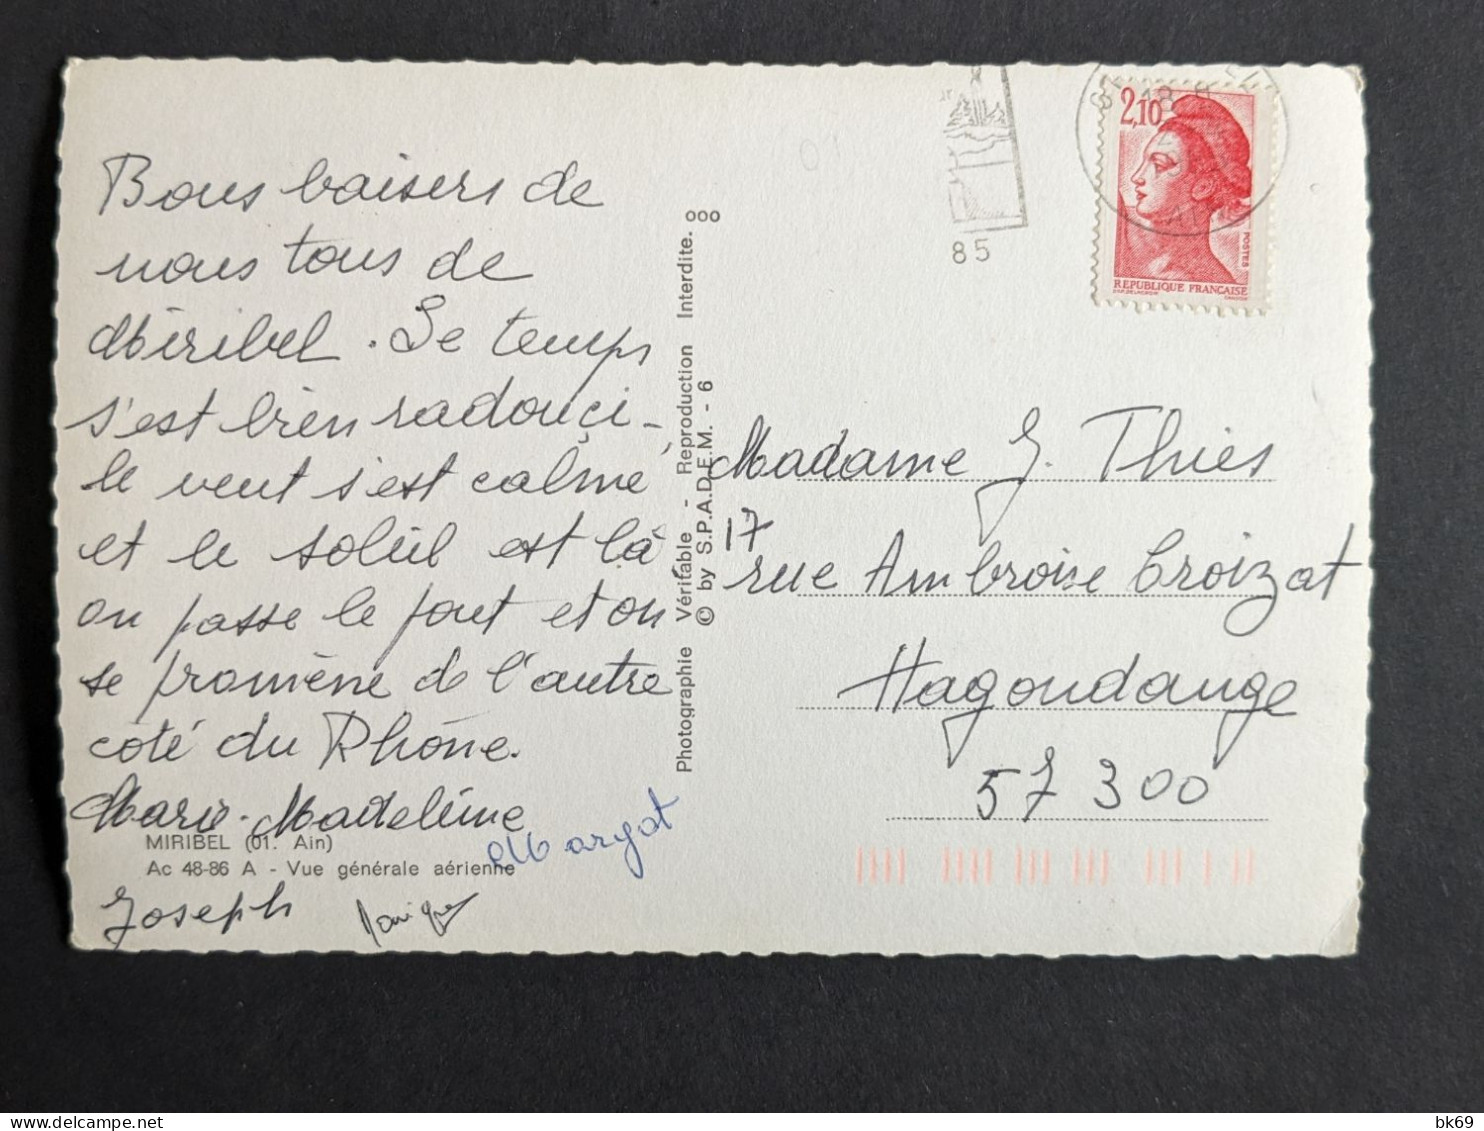 Bons baisers de
nous tous de
Méribel. Le temps
s'est bien radouçi,
le vent s'est calmé
et le soleil est là
on passe le pont et on
se promène de l'autre
côté du Rhône.
Marie-Madeleine
MIRIBEL (01. Ain)
Ac 48-86 A - Vue générale aérienne
Margot
Joseph
Photographie Véritable - Reproduction Interdite. ooo
© by S.P.A.D.E.M. - 6
85
18
2,10
POSTES
REPUBLIQUE FRANÇAISE
Madame J. Thiès
17
rue Ambroise Croizat
Hagondange
57 300
bk69